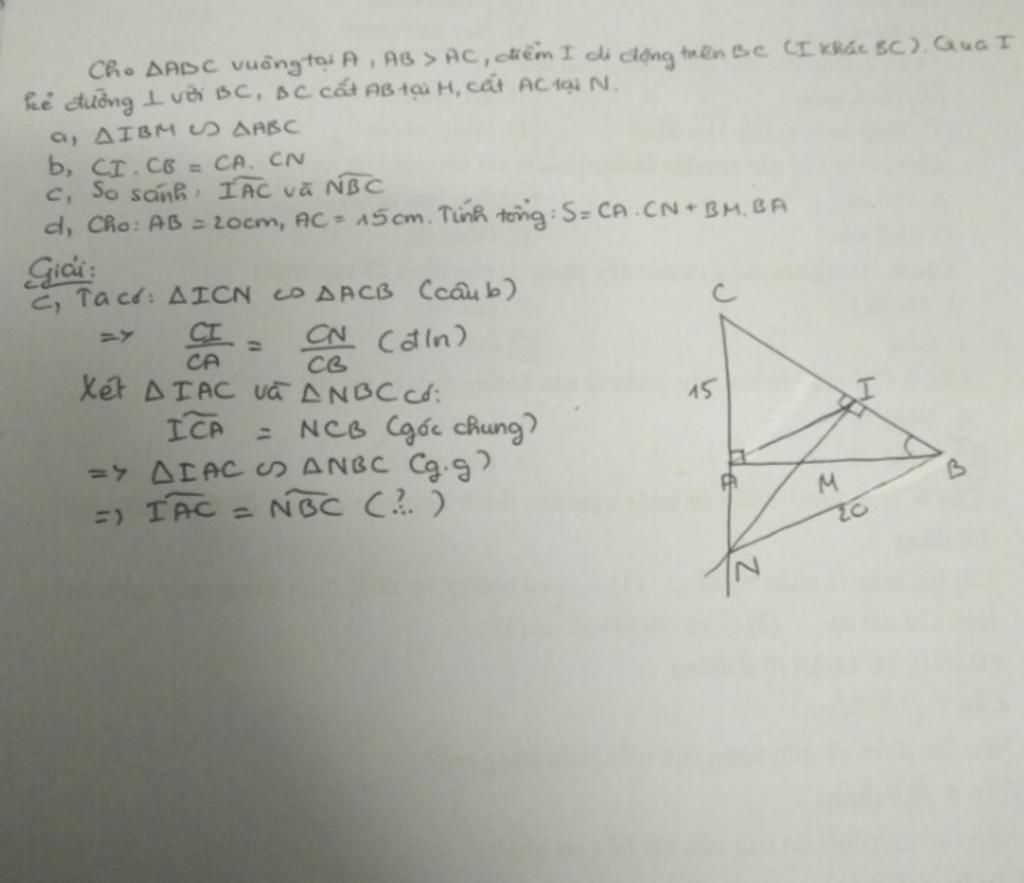 Cho ΔABC vuông tại A, AB > AC, điểm I di động trên BC (I khác BC). Qua I
kẻ đường ⊥ với BC, BC cắt AB tại M, cắt AC tại N.
a, ΔIBM ∽ ΔABC
b, CI. CB = CA. CN
c, So sánh: IAC và NBC
d, Cho: AB = 20cm, AC = 15cm. Tính tổng: S = CA. CN + BM. BA
Giải:
c, Ta có: ΔICN ∽ ΔACB (câu b)
=> CI/CA = CN/CB (đ/n)
Xét ΔIAC và ΔNBC có:
ICA = NCB (góc chung)
=> ΔIAC ∽ ΔNBC (g.g)
=> IAC = NBC (?..)
C
15
I
A
M
B
20
N